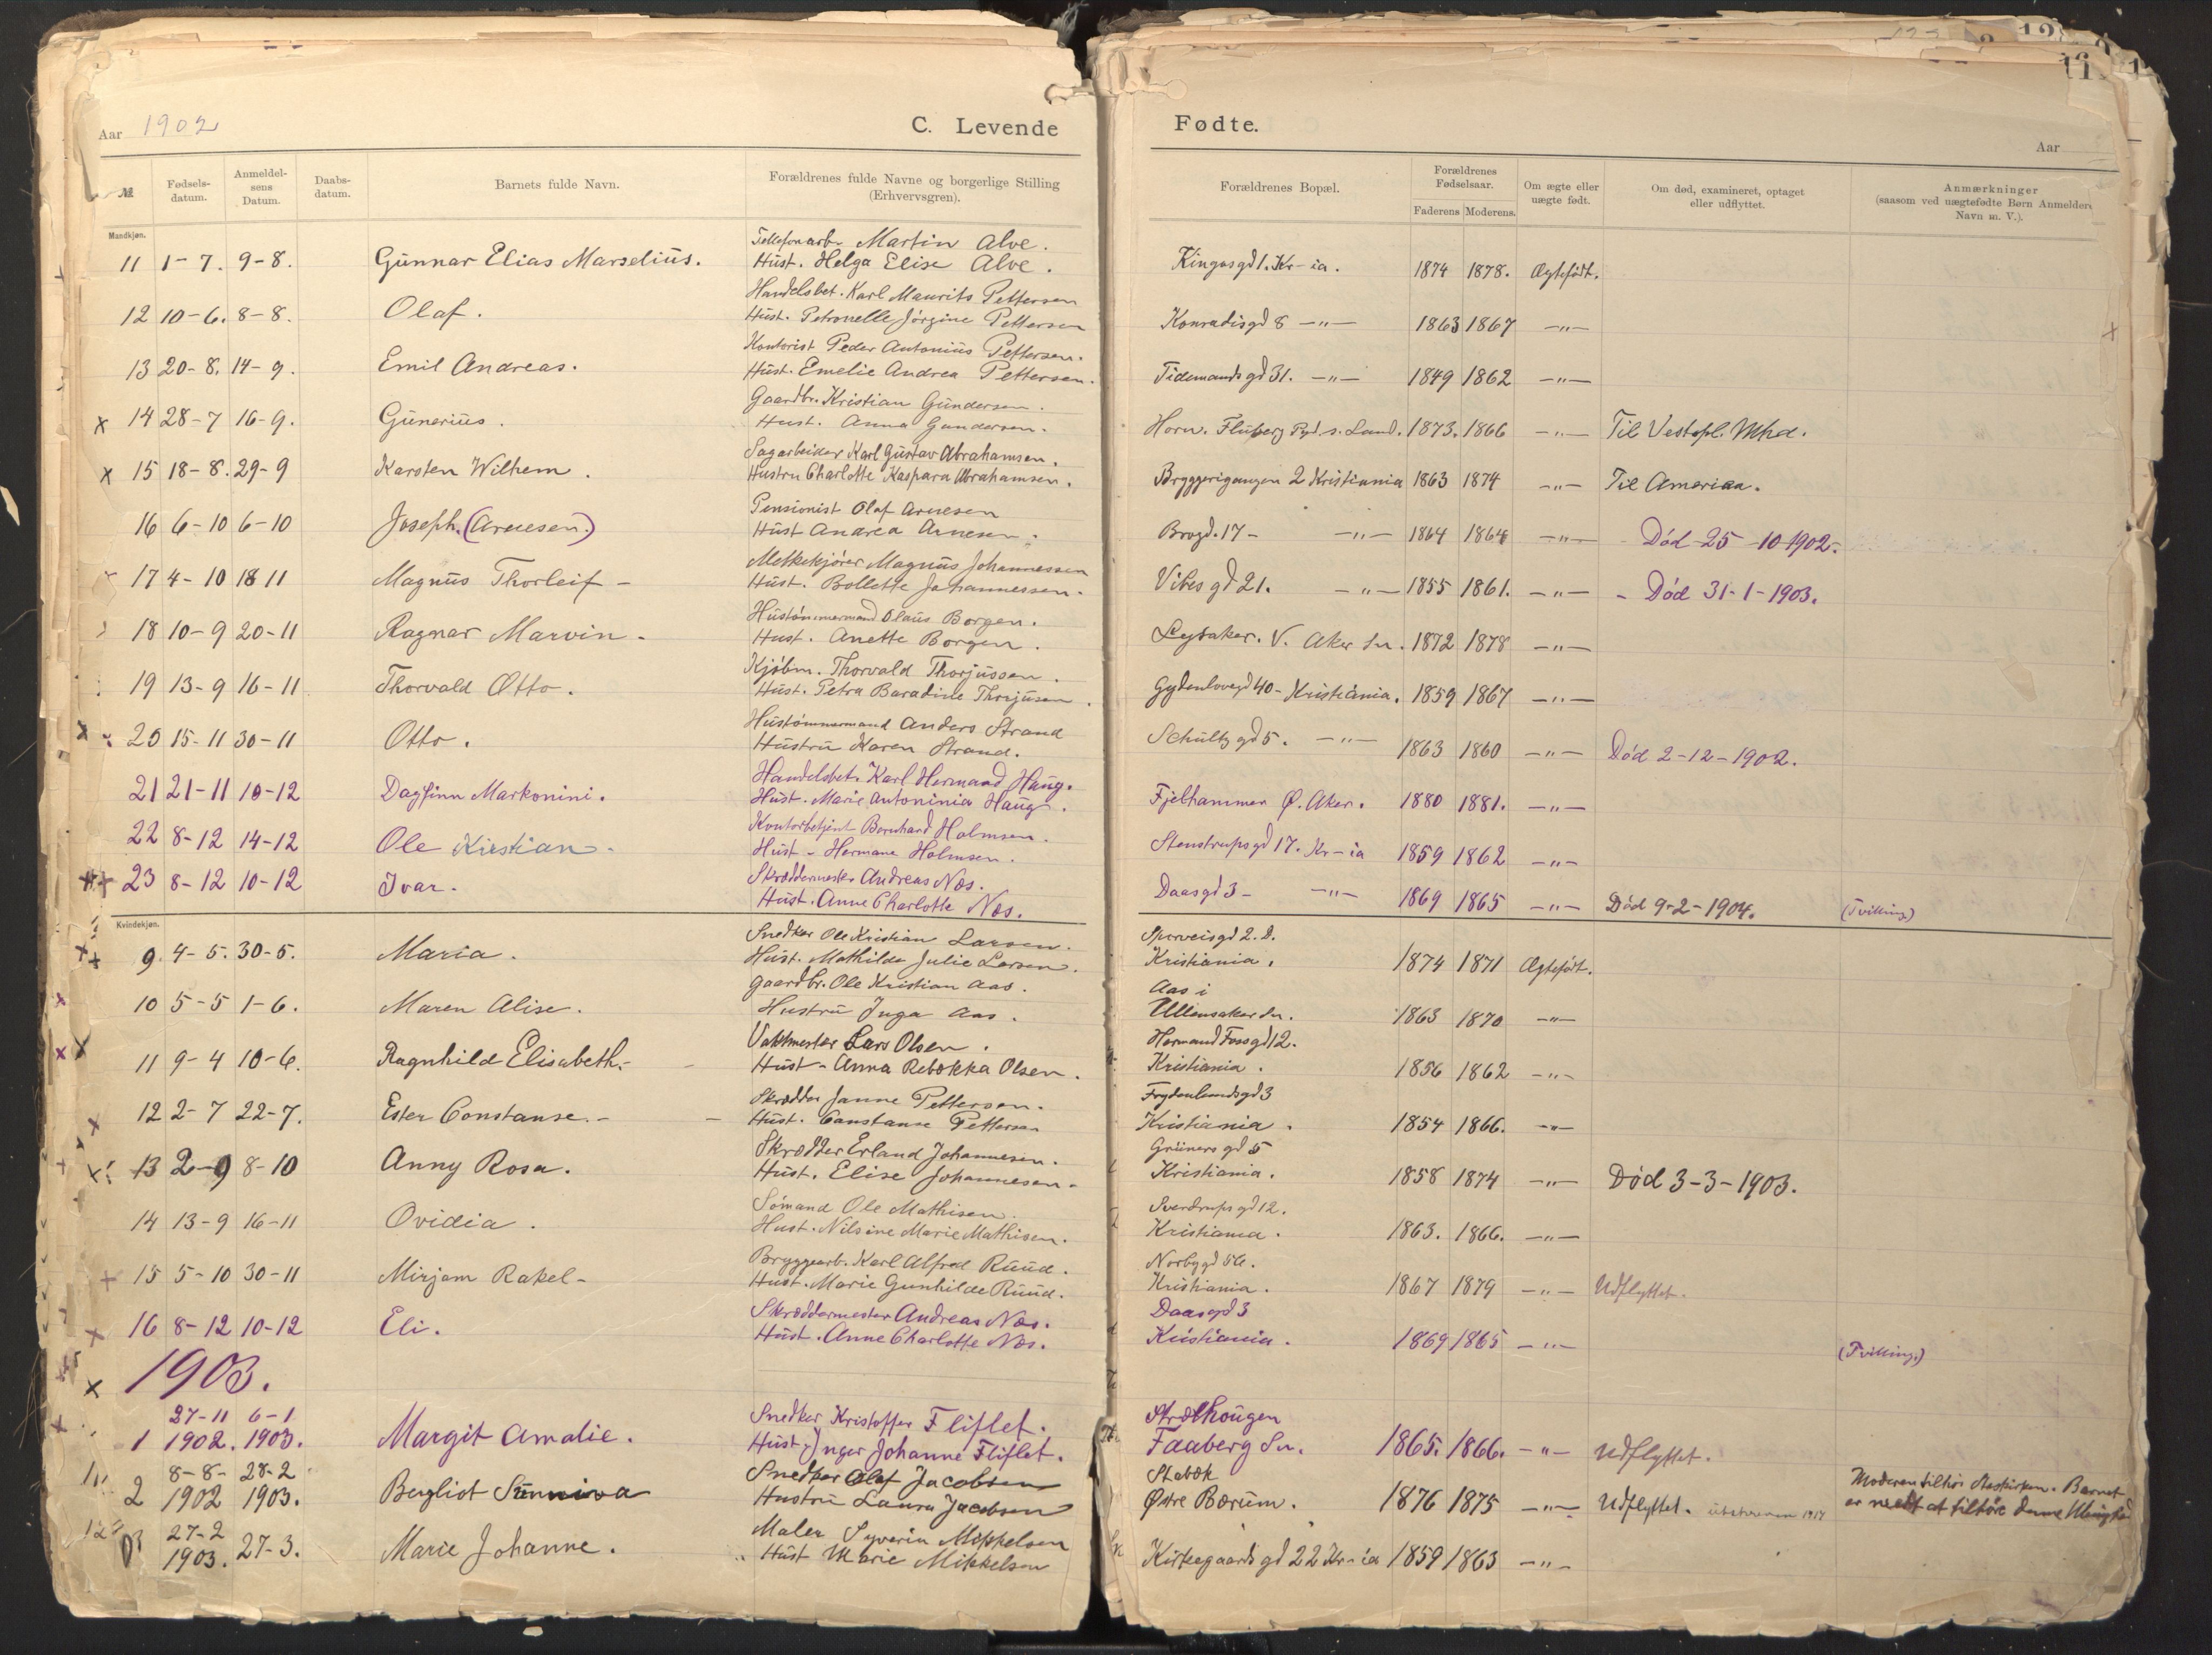 Aar 1902 C. Levende Fødte. Aar
№ Fødselsdatum. Anmeldelsens Datum. Daabsdatum. Barnets fulde Navn. Forældrenes fulde Navne og borgerlige Stilling (Erhvervsgren). Forældrenes Bopæl. Forældrenes Fødselsaar. Faderens Moderens. Om ægte eller uægte født. Om død, examineret, optaget eller udflyttet. Anmærkninger (saasom ved uægtefødte Børn Anmelderens Navn m. V.).
Mandkjøn.
Martin Alve.
11 1-7. 9-8. Gunnar Elias Marselius. Hust. Helga Elise Alve. Kr-ia. 1874 1878. Ægtefødt.
Handelsbet. Karl Maurits Pettersen
12 10-6. 8-8. Olaf. Hust. Petronelle Jørgine Pettersen Konradisgd 8 -"- 1863 1867 -"-
Kontorist Peder Antonius Pettersen.
13 20-8. 14-9. Emil Andreas. Hust. Emelie Andrea Pettersen. Tidemandsgd 31. -"- 1849 1862 -"-
Gaardbr. Kristian Gundersen.
x 14 28-7 16-9. Gunerius. Hust. Anna Gundersen. Horn. Fluberg s. Land. 1873. 1866 -"- Til Vestopl. Mhd.
Sagarbeider Karl Gustav Abrahamsen.
x 15 18-8. 29-9 Karsten Wilhem. Hustru Charlotte Kaspara Abrahamsen. Bryggerigangen 2 Kristiania 1863 1874 -"- Til America.
Pensionist Olaf Arnesen
16 6-10 6-10 Joseph. (Arnesen.) Hust Andrea Arnesen. Brogd. 17- -"- 1864 1864 -"- Död 25-10-1902.
Melkekjører Magnus Johannessen
17 4-10 18 11 Magnus Thorleif - Hust. Bollette Johannessen. Vibesgd 21. -"- 1855 1861. -"- Död 31-1-1903.
Hustømmermand Olaus Borgen.
18 10-9 20-11 Ragnar Marvin - Hust. Anette Borgen. Lysaker. V. Aker Sn. 1872 1878 -"-
Kjøbm. Thorvald Thorjussen.
19 13-9 16-11 Thorvald Otto. Hust. Petra Thorjusen. Gyldenlovegd 40- Kristiania. 1859 1867 -"-
Hustømmermand Anders Strand
x 20 15-11 30-11 Otto. Hustru Karen Strand. Schultzgd 5. -"- 1863 1860 -"- Död 2-12-1902.
Handelsbet. Karl Hermand Haug.
21 21-11 10-12 Dagfinn Markonini. Hust. Marie Antoninia Haug. Fjelhammer Ø. Aker. 1880 1881. -"-
Kontorbetjent Bernhard Holmsen.
22 8-12 14-12 Ole Kristian - Hust - Hermane Holmsen. Stenstrupsgd 17. Kr-ia 1859 1862 -"-
Skræddermester Andreas Næs.
23 8-12 10-12 Ivar. Hust. Anne Charlotte Næs. Daasgd 3- -"- 1869 1865 -"- Död 9-2-1904. (Tvilling)
Kvindekjøn.
Snedker Ole Kristian Larsen. Sporveisgd 2. D.
9. 4-5. 30-5. Maria. Hust. Mathilde Julie Larsen. Kristiania. 1874 1871 Ægtefødt.
Gaardbr. Ole Kristian Aas. Aas i
10 5-5 1-6. Maren Alise. Hustru Inga Aas. Ullensaker Sn. 1863 1870 -"-
Vaktmester Lars Olsen. Hermand Fossgd 12.
11 9-4 10-6. Ragnhild Elisabeth. - Hust - Anna Rebekka Olsen. Kristiania. 1856 1862 -"-
Skrædder Janne Pettersen. Frydenlundsgd 3
12 2-7 22-7. Ester Constanse. - Hust. Constanse Pettersen Kristiania. 1854 1866. -"-
Skrædder Erland Johannesen. Grüners gd 5
13 2-9 8-10 Anny Rosa. Hust. Elise Johannesen. Kristiania. 1858 1874 -"- Död 3-3-1903.
Sømand Ole Mathisen. Sverdrupsgd 12.
14 13-9 16-11 Ovidia. Hust. Nilsine Marie Mathisen. Kristiania. 1863. 1866. -"-
Bryggearb. Karl Alfred Ruud. Norbygd 56.
15 5-10 30-11 Mirjam Rakel - Hust. Marie Gunhilde Ruud. Kristiania. 1867 1879 -"- Udflyttet.
Skræddermester Andreas Næs. Daasgd 3
16 8-12 10-12 Eli. Hust. Anne Charlotte Næs. Kristiania. 1869 1865 -"- (Tvilling.)
x 1903.
27-11 6-1 Snedker Kristoffer Fliflet.
1 1902. 1903. Margit Amalie. Hust. Inger Johanne Fliflet. Faaberg Sn. 1865. 1866. -"- Udflyttet.
8-8- 28-2 Snedker Olaf Jacobsen Stabæk Moderen tilhör Statskirken. Barnet
2 1902 1903. Bergliot Sunniva Hustru Laura Jacobsen Østre Bærum. 1876 1875 -"- Udflyttet. 1917 er meldt at tilhöre denne
27-2 Maler Syverin Mikkelsen
1903. 27-3. Marie Johanne. Hust Marie Mikkelsen Kirkegaardsgd 22 Kr-ia 1859 1863 -"-